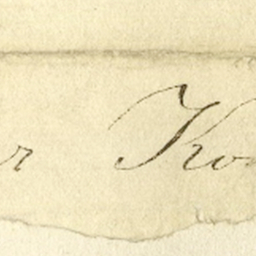 r Ko